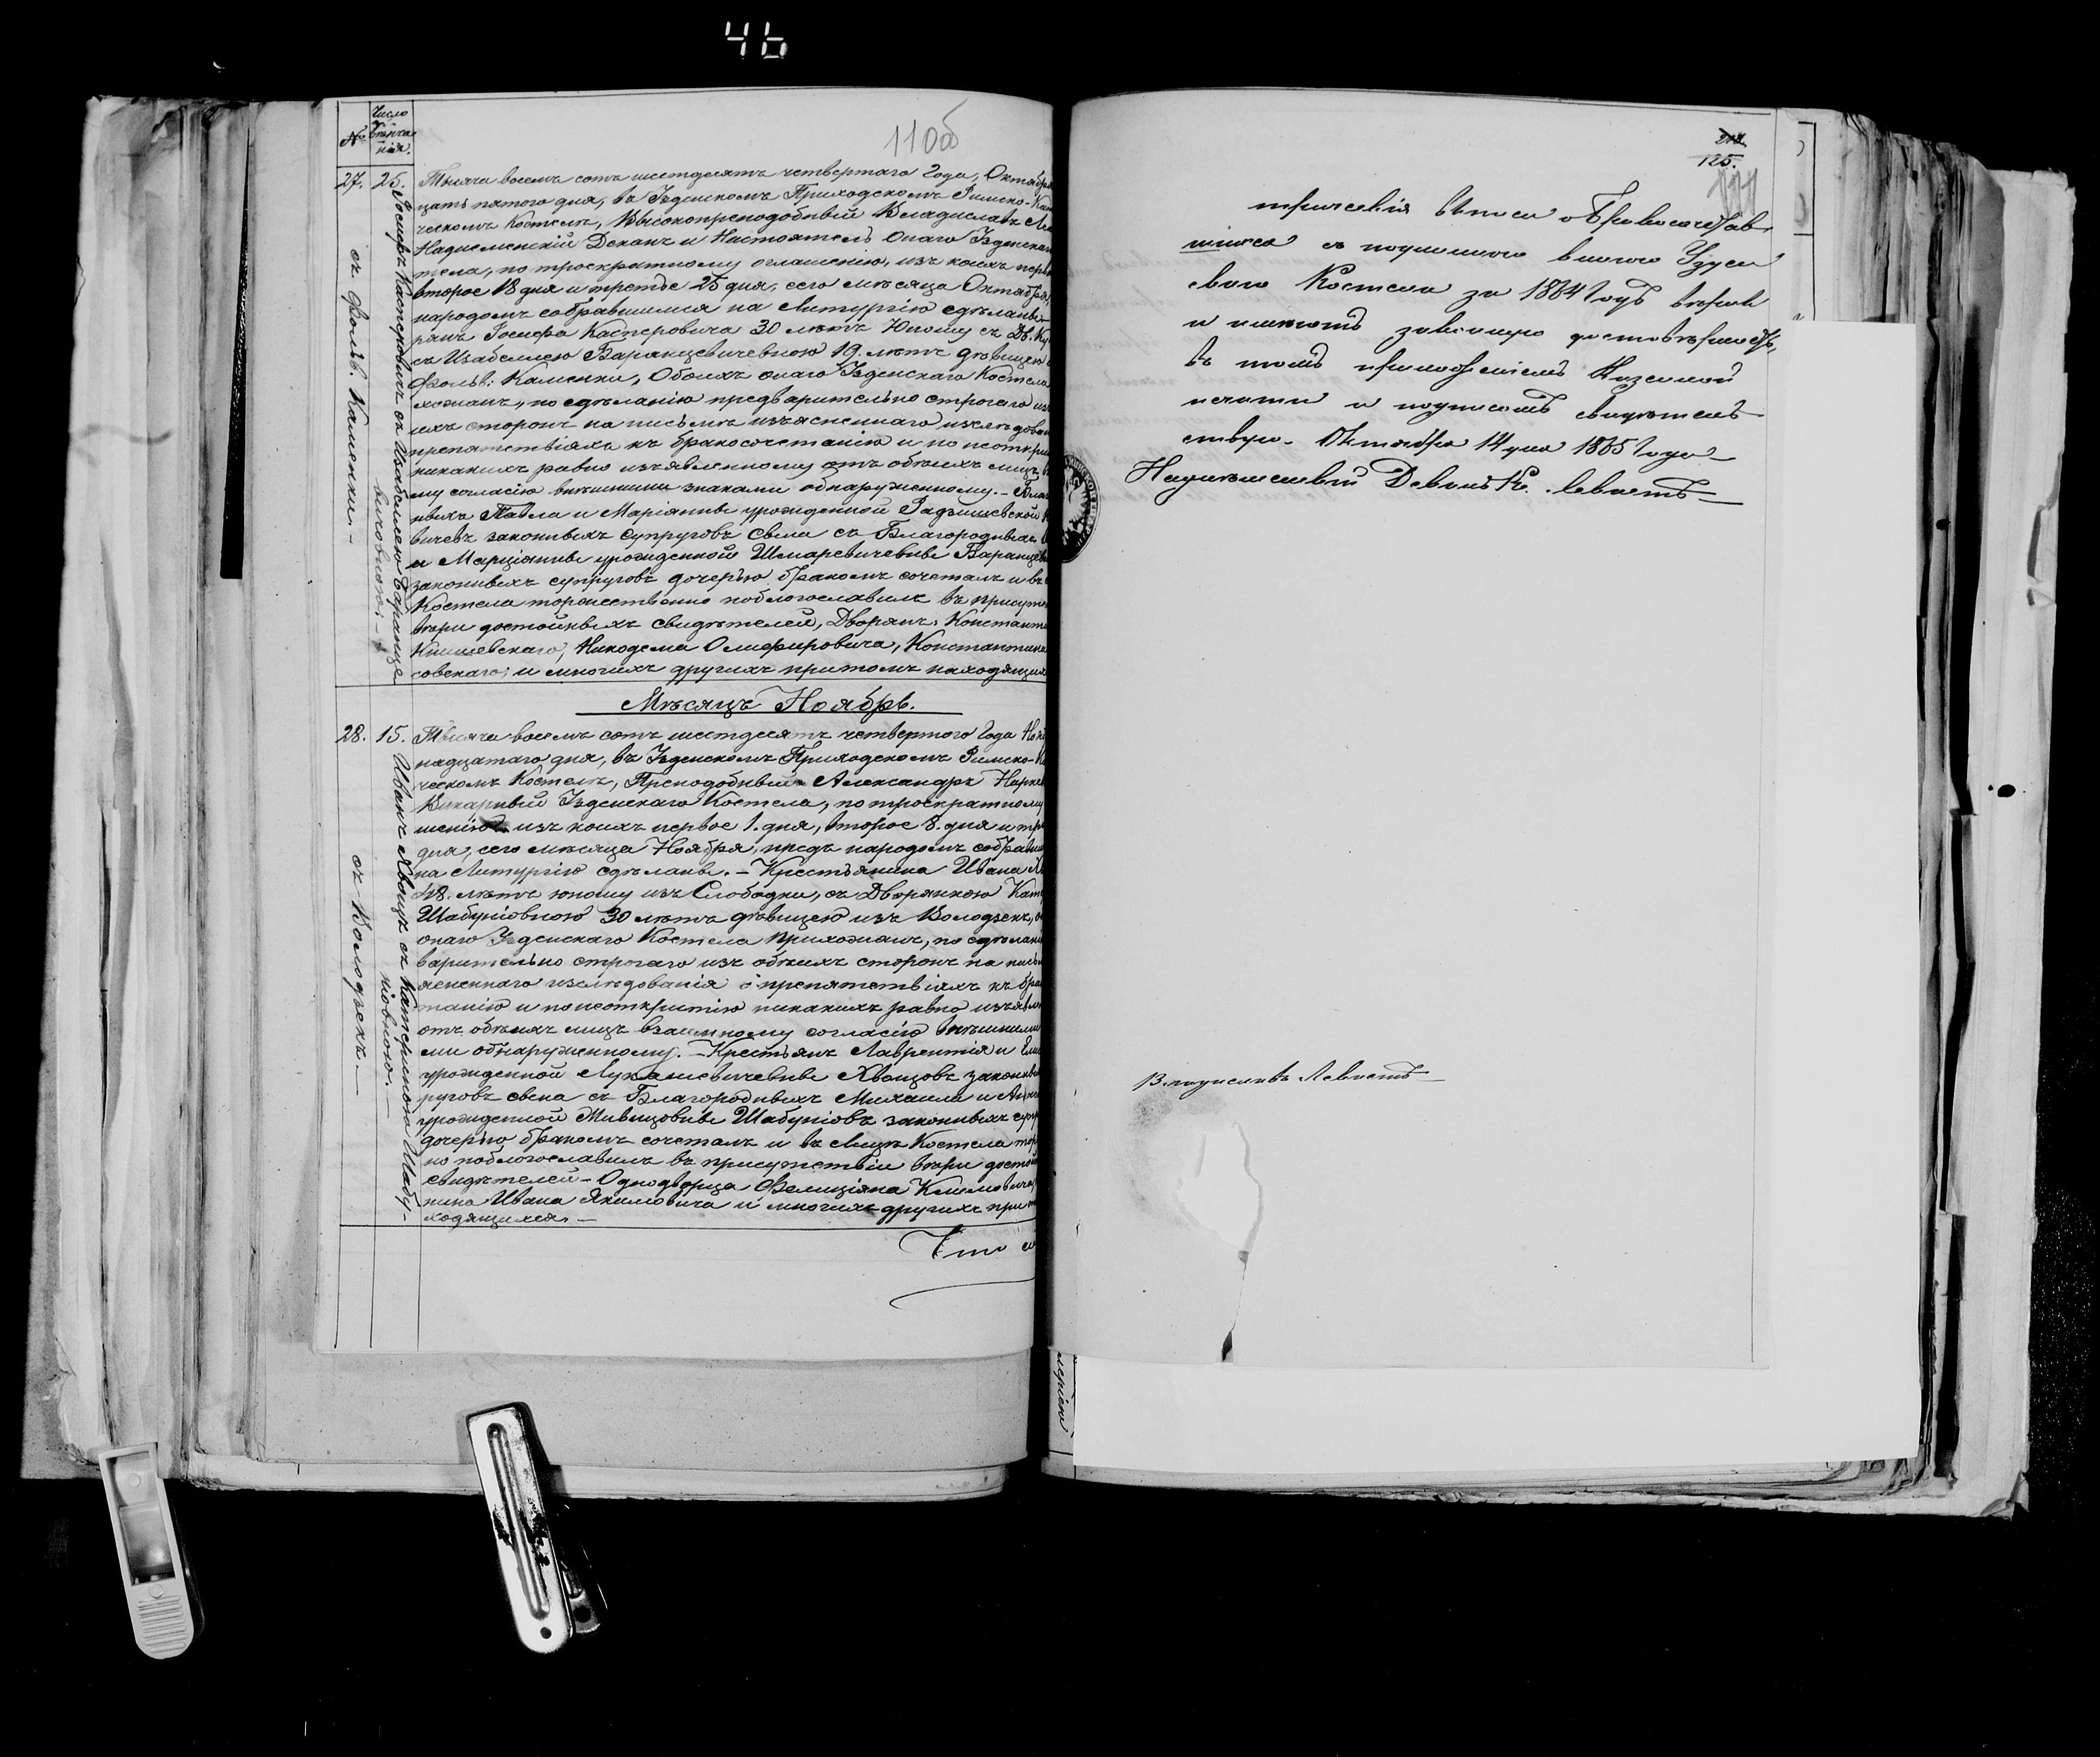 46
110об
№
Число
вѣнча
нія.
27.
25.
Іосифъ Касперовичъ съ Изабеллею Баранце
вичовною. –
съ Фольв. Каменки. –
Тысяча восемь сотъ шестдесятъ четвертаго Года, Октября
цать пятого дня, въ Узденскомъ Приходскомъ Римско-Ка
ческомъ Костелѣ, Высокопреподобный Владиславъ Ле
Надпеменскій Деканъ и Настоятель Онаго Узденска
тела, по троекратному оглашенію, изъ коихъ перв
второе 18 дня и третье 25 дня, сего мѣсяца Октября,
народомъ собравшимся на Литургію сдѣланы –
рянъ Іосифа Касперовича 30 лѣтъ Юному съ Дв. Ку
съ Изабеллею Баранцевичевною 19. лѣтъ дѣвицею
Фольв: Каменки, Обоихъ онаго Узденскаго Костела
хожанъ, по сдѣланію предварительно строгаго из
ихъ сторонъ на письмѣ изъясненнаго изслѣдова
препятствіяхъ къ бракосочетанію и по неоткры
никакихъ равно изъявленному отъ обѣихъ лицъ в
му согласію внѣшними знаками обнаруженному. – Бла
ныхъ Павла и Маріянны урожденной Радзишевской
вичевъ законныхъ супруговъ сына съ Благородныхъ
и Марціянны урожденной Шмаревичевны Баранцев
законныхъ супруговъ дочерью бракомъ сочеталъ и въ
Костела торжественно поблогославилъ въ присут
вѣри достойныхъ свидѣтелей, Дворянъ, Констант
Книшевскаго, Никодема Олифировича, Константина
совскаго; и многихъ другихъ притомъ находящих
Мѣсяцъ Ноябрь.
28.
15.
Иванъ Хвощъ съ Катериною Шабу-
ніовною. –
съ Володзекъ –
Тысяча восемь сотъ шестдесятъ четвертого Года Но
надцатаго дня, въ Узденскомъ Приходскомъ Римско-К
ческомъ Костелѣ, Преподобный Александръ Нарке
Викарный Узденскаго Костела, по троекратному
шенію изъ коихъ первое 1. дня, второе 8. дня и тр
дня, сего мѣсяца Ноября, предъ народомъ собрав
на Литургію сдѣланы. – Крестьянина Ивана Х
48. лѣтъ юному изъ Слободки, съ Дворянкою Кат
Шабуніовною 30 лѣтъ дѣвицею изъ Володзекъ,
онаго Узденскаго Костела Прихожанъ, по сдѣлан
варительно строгаго изъ обѣихъ сторонъ на пись
ясненнаго изслѣдованія о препятствіяхъ къ бра
танію и по неоткрытію никакихъ равно изъявл
отъ обѣихъ лицъ взаимному согласію внѣшними
ми обнаруженному. – Крестьянъ Лаврентія и
урожденной Лукашевичевны Хвощовъ законны
руговъ сына съ Благородныхъ Михаила и
урожденной Мивщовны Шабуніовъ законныхъ суп
дочерью бракомъ сочеталъ и въ Лицѣ Костела тор
но поблогославилъ въ присутствіи вѣри досто
свидѣтелей – Однодворца Фелиціяна Климовича,
нина Ивана Якимовича и многихъ другихъ при
ходящихся. –
Что
125.
трическія выписи о бракосочетав
шихся съ подлинною книгою Узден
скаго Костела за 1864 годъ вѣрны
и имѣютъ законную достовѣрность,
въ томъ приложеніемъ Казенной
печати и подписомъ свидѣтель
ствую. Октября 14 дня 1865 года
Надпеменскій Деканъ Кс. Левкетъ
Владиславъ Левкетъ